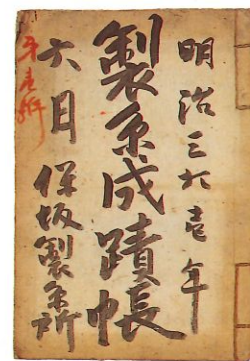 明治三拾壱年
製糸成蹟帳
六月
保坂製糸所